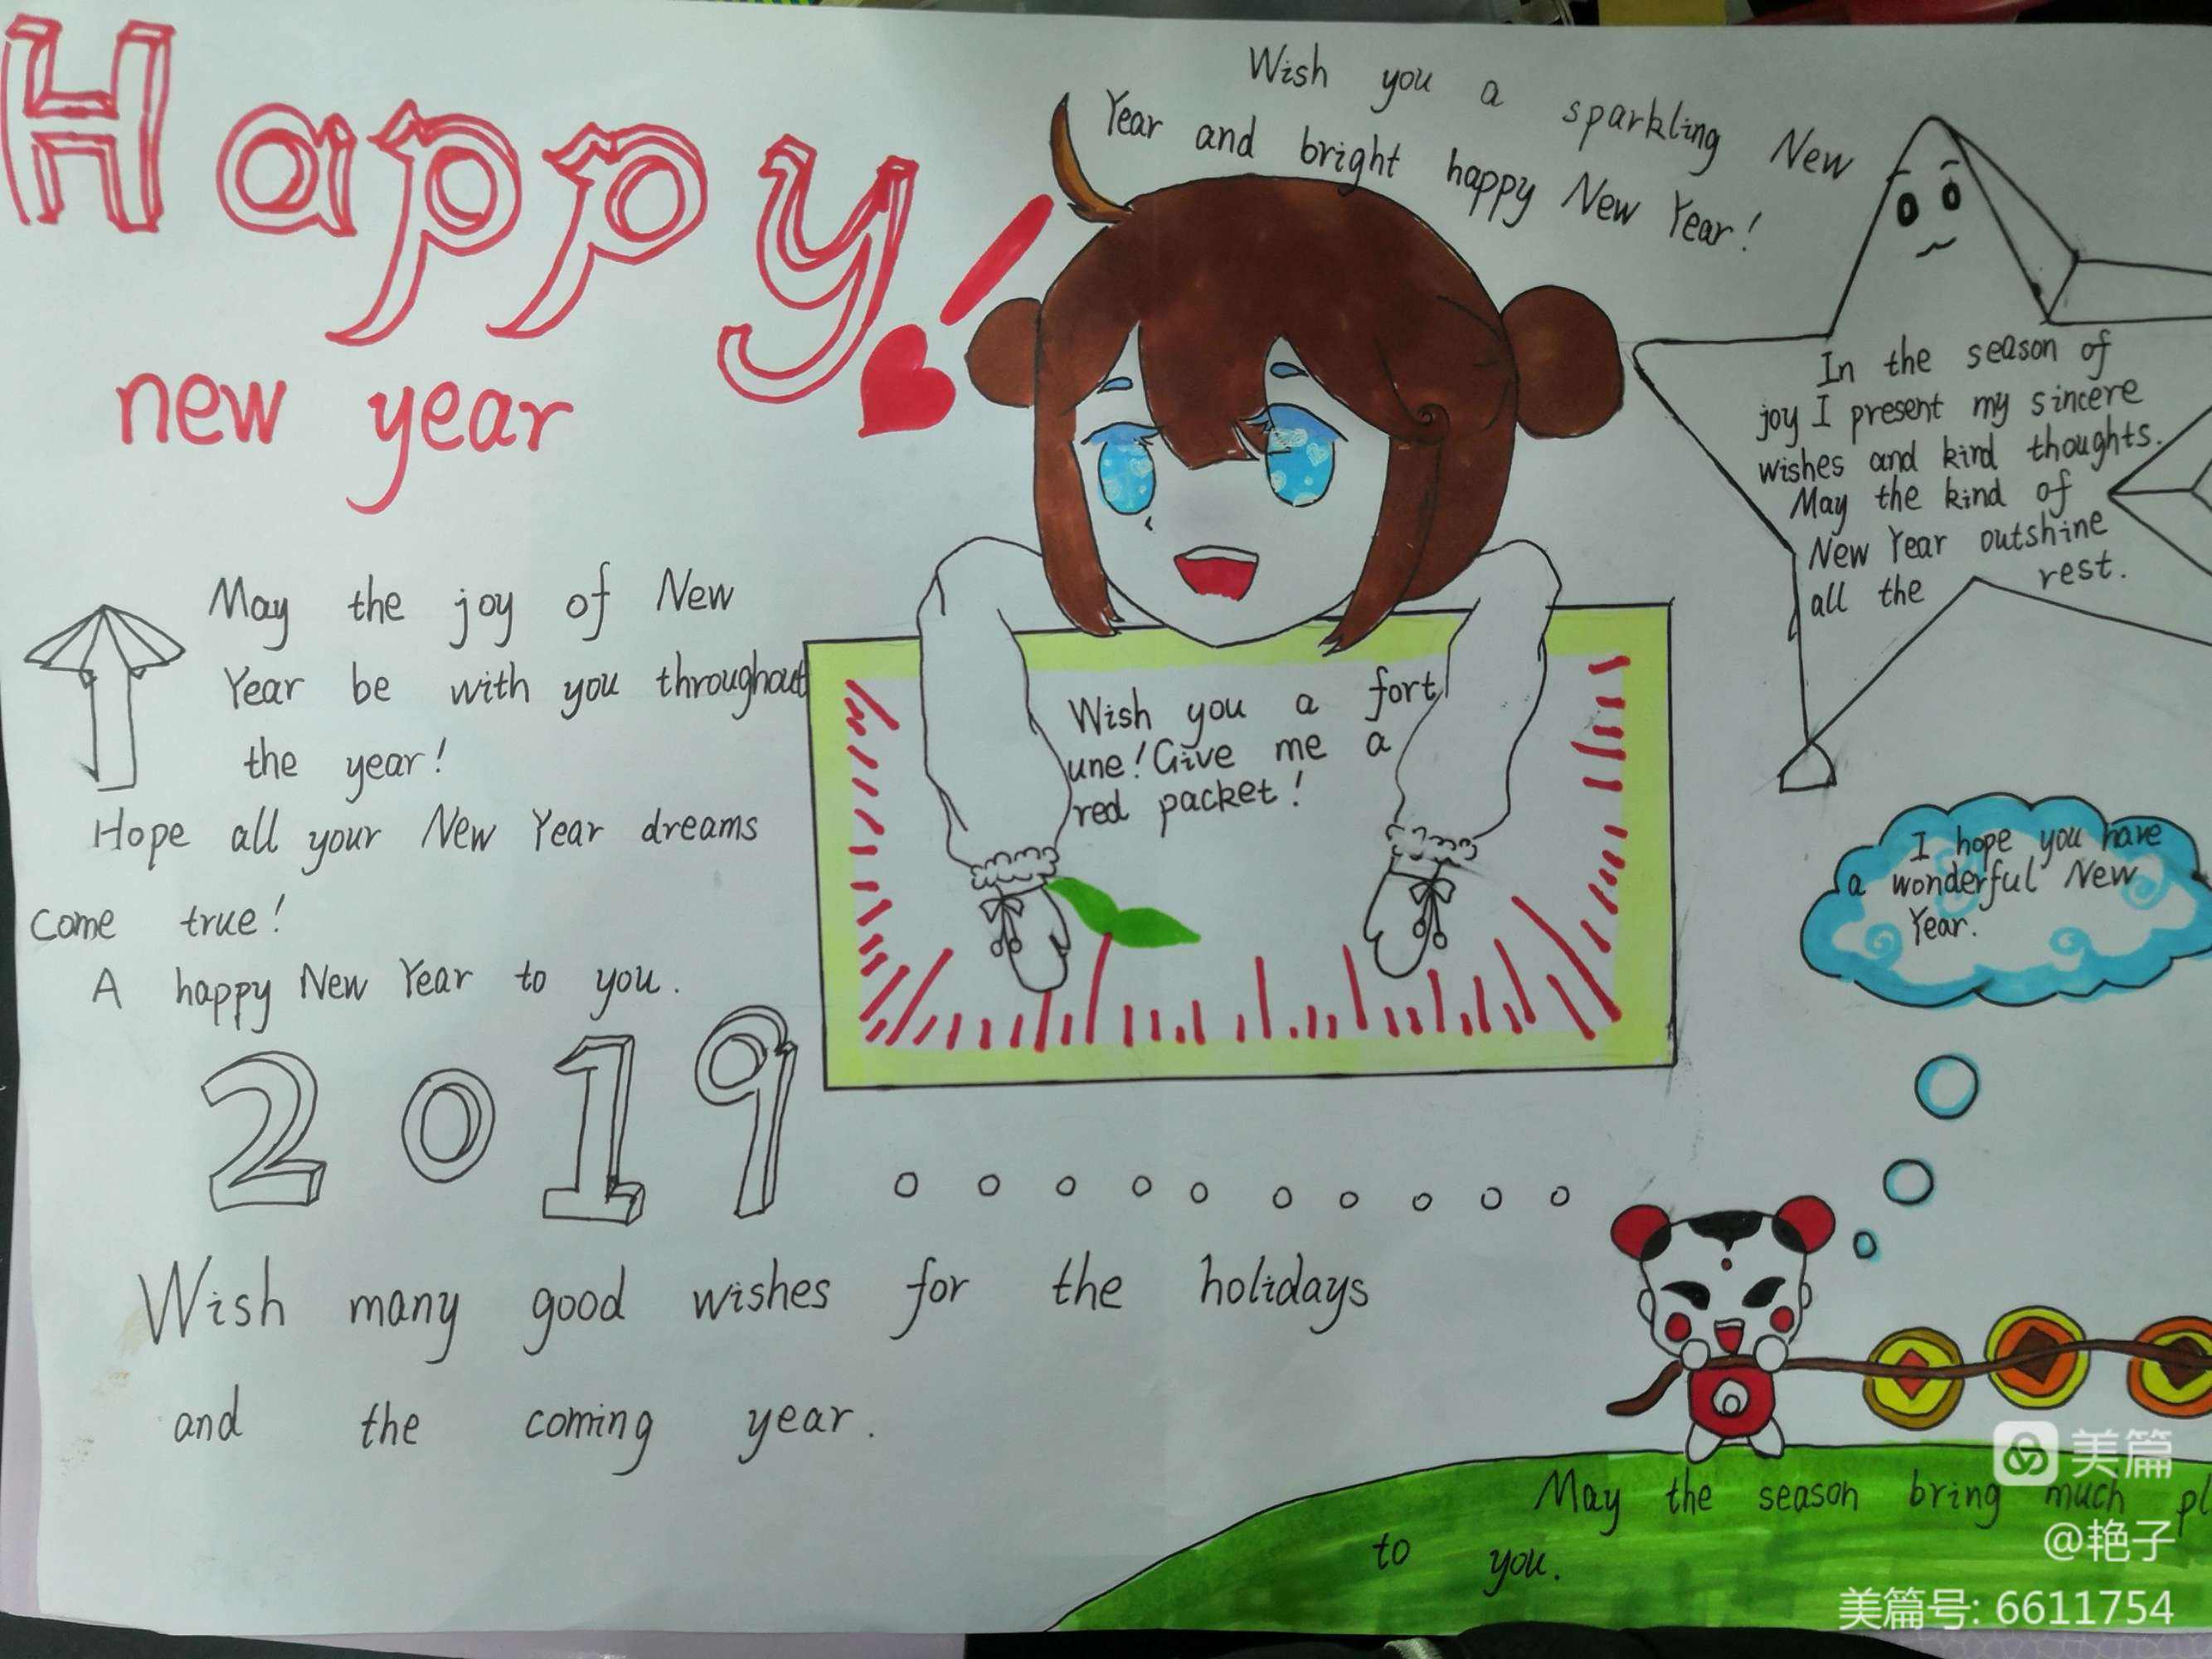 Happy!
new year
Wish you a sparkling New
Year and bright happy New Year!
In the season of
joy I present my sincere
wishes and kind thoughts.
May the kind of
New Year outshine
all the rest.
May the joy of New
Year be with you throughout
the year!
Hope all your New Year dreams
come true!
A happy New Year to you.
Wish you a fort
une! Give me a
red packet!
I hope you have
a wonderful New
Year.
2019
Wish many good wishes for the holidays
and the coming year.
May the season bring much pl
to you.
美篇
@艳子
美篇号: 6611754